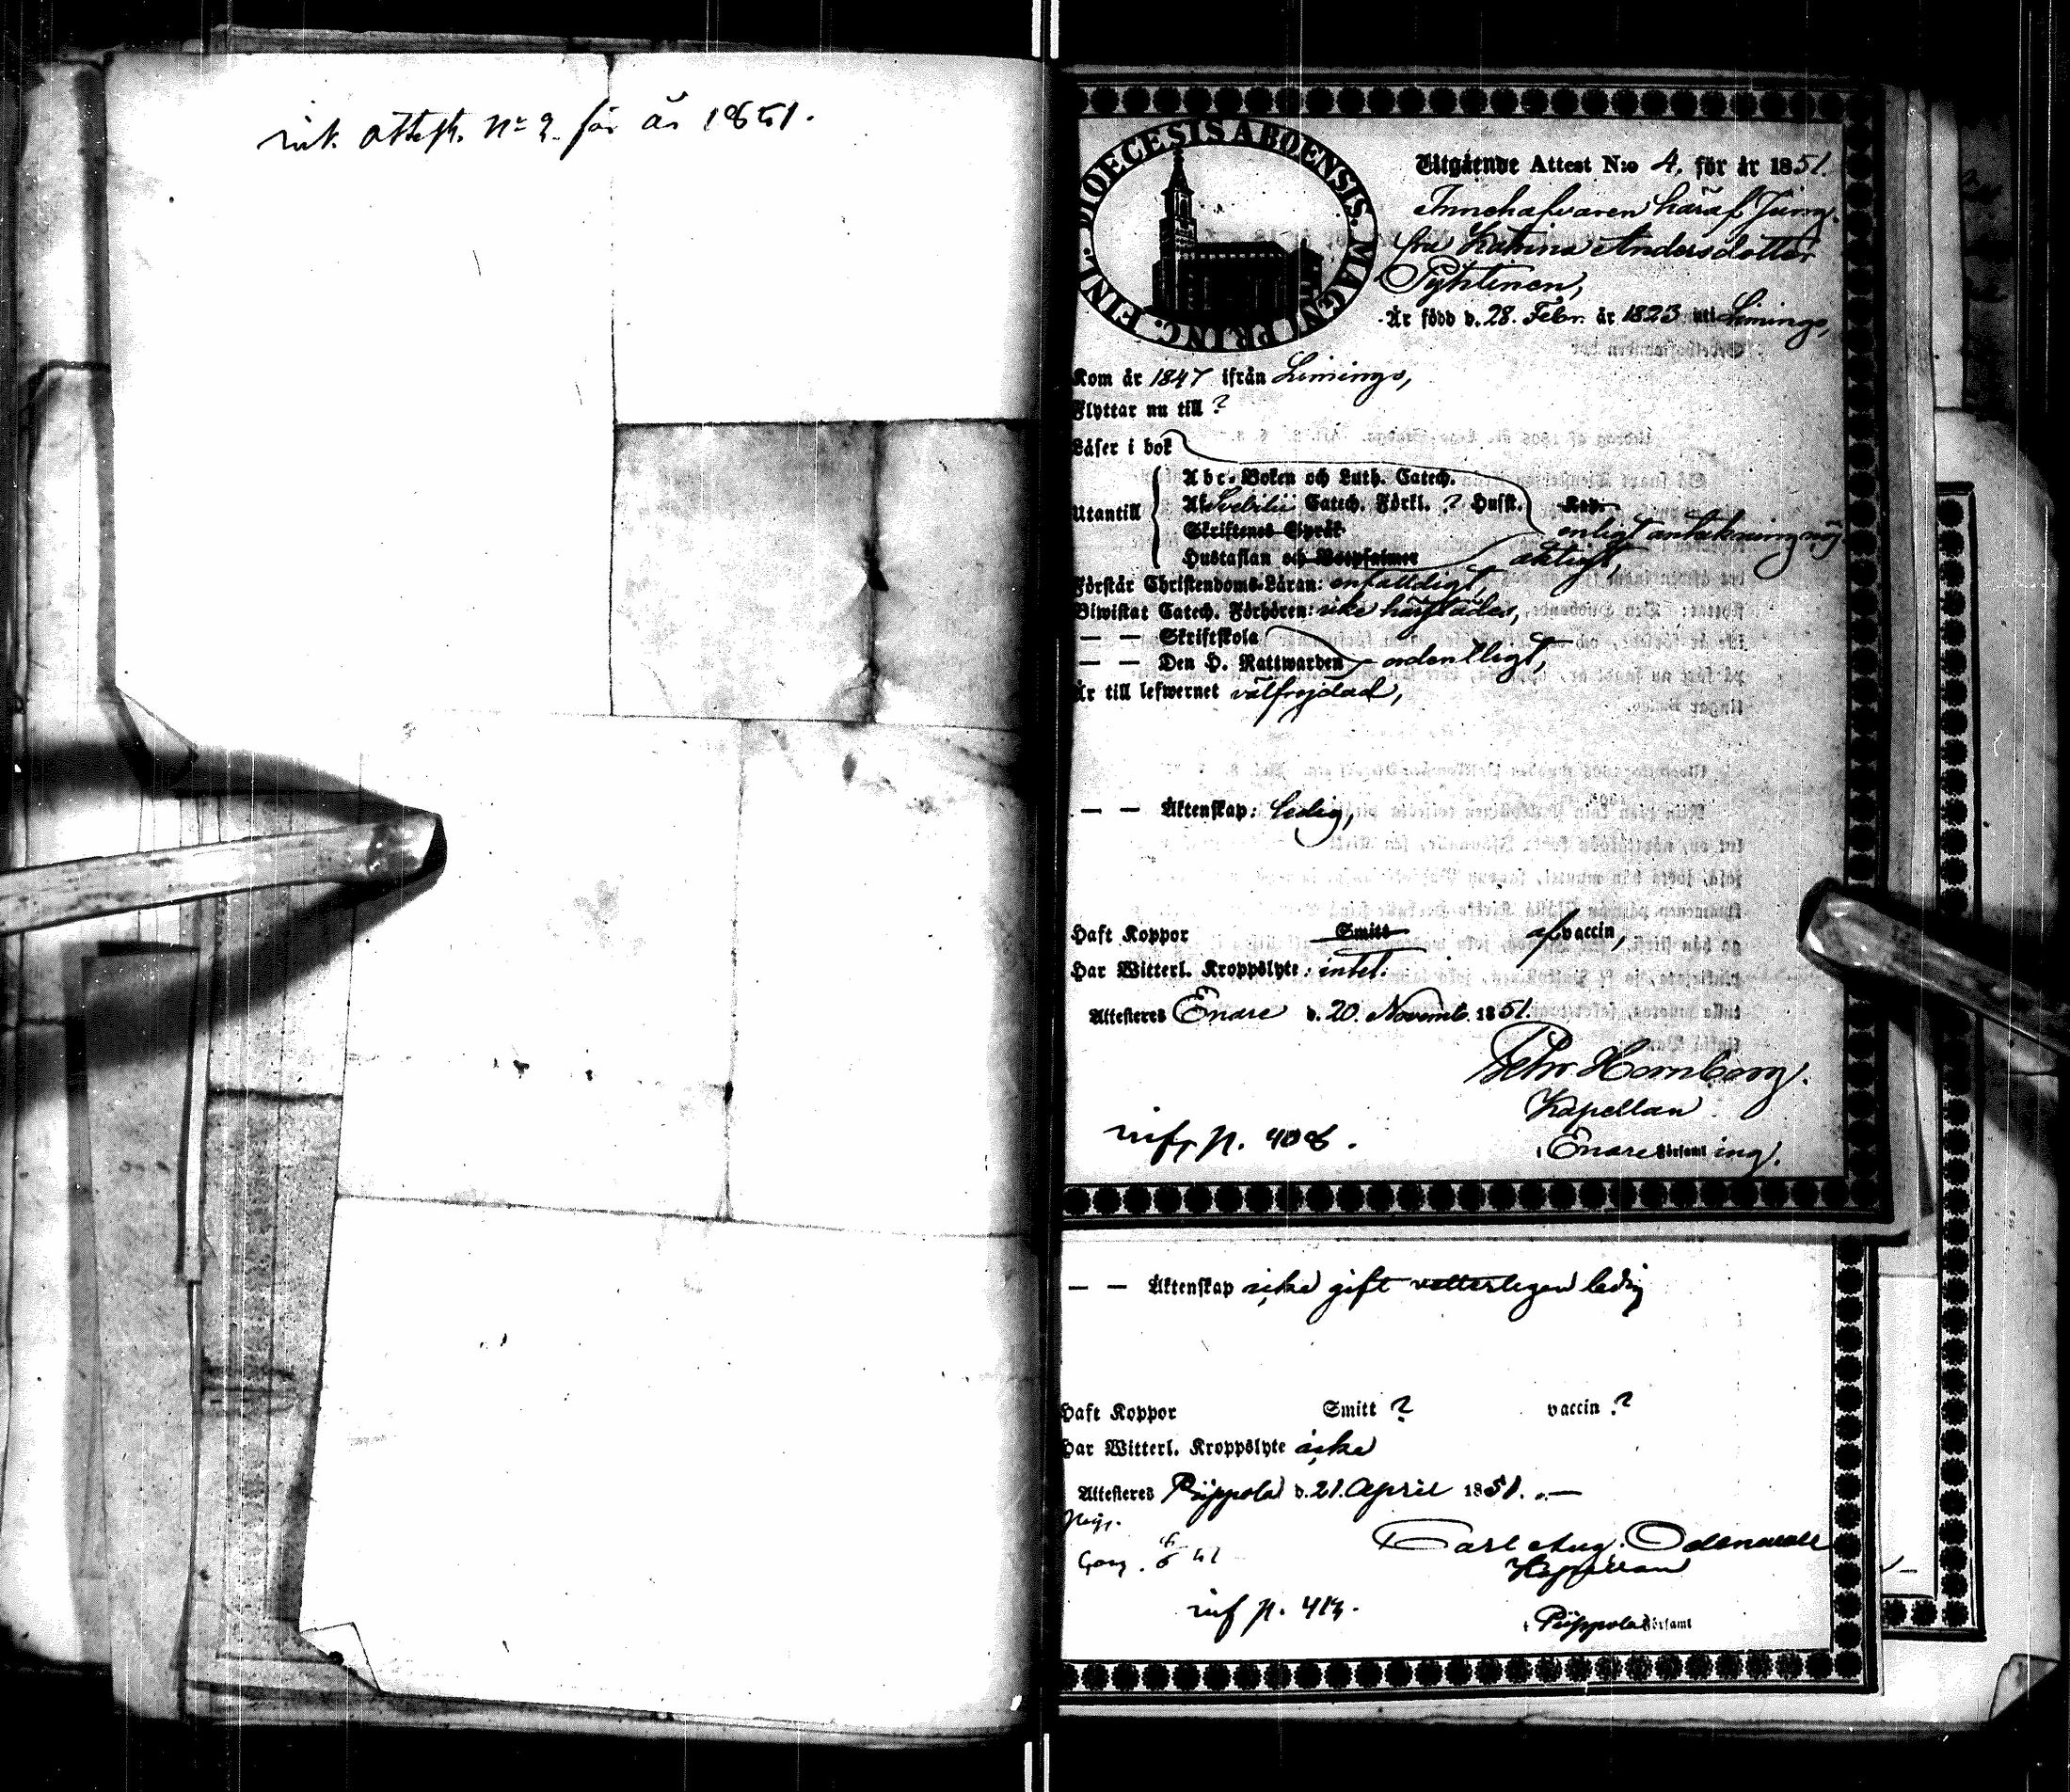 ink. attest. No 2. för år 1851.
DIOECESIS ABOENSIS. MAGNI PRINC. FINL.
Utgående Attest N:o 4. för år 1851.
Innehafvaren häraf Jung-
fru Katrina Andersdotter
Pyhtinen,
Är född d. 28. Febr. år 1823 uti Limingo,
Kom år 1847 ifrån Limingo,
Flyttar nu till ?
Läser i bok
Utantill
Abc-Boken och Luth. Catech.
Af Svebilii Catech. Förkl. ? Husft. Kap.
Skriftenes Språk enligt antekning nöj-
Hustaflan och Botpsalmer aktigt,
Förstår Christendoms-Läran: enfaldigt,
Biwistat Catech. Förhören: icke härstädes,
— — Skriftskola
— — Den H. Nattwarden ordentligt,
Är till lefwernet välfrejdad,
— — Äktenskap: ledig,
Haft Koppor Smitt af vaccin,
Har Witterl. Kroppslyte: intet.
Attesteras Enare d. 20. Novemb. 1851.
Pehr Hornborg.
Kapellan
i Enare Församling.
inf. p. 408.
— — Äktenskap icke gift vetterligen ledig
Haft Koppor Smitt ? vaccin ?
Har Witterl. Kroppslyte icke
Attesteras Piippola d. 21. April 1851. —
Carl Aug. Odenwall
Kapellan
i Piippola Församl
inf p. 413.